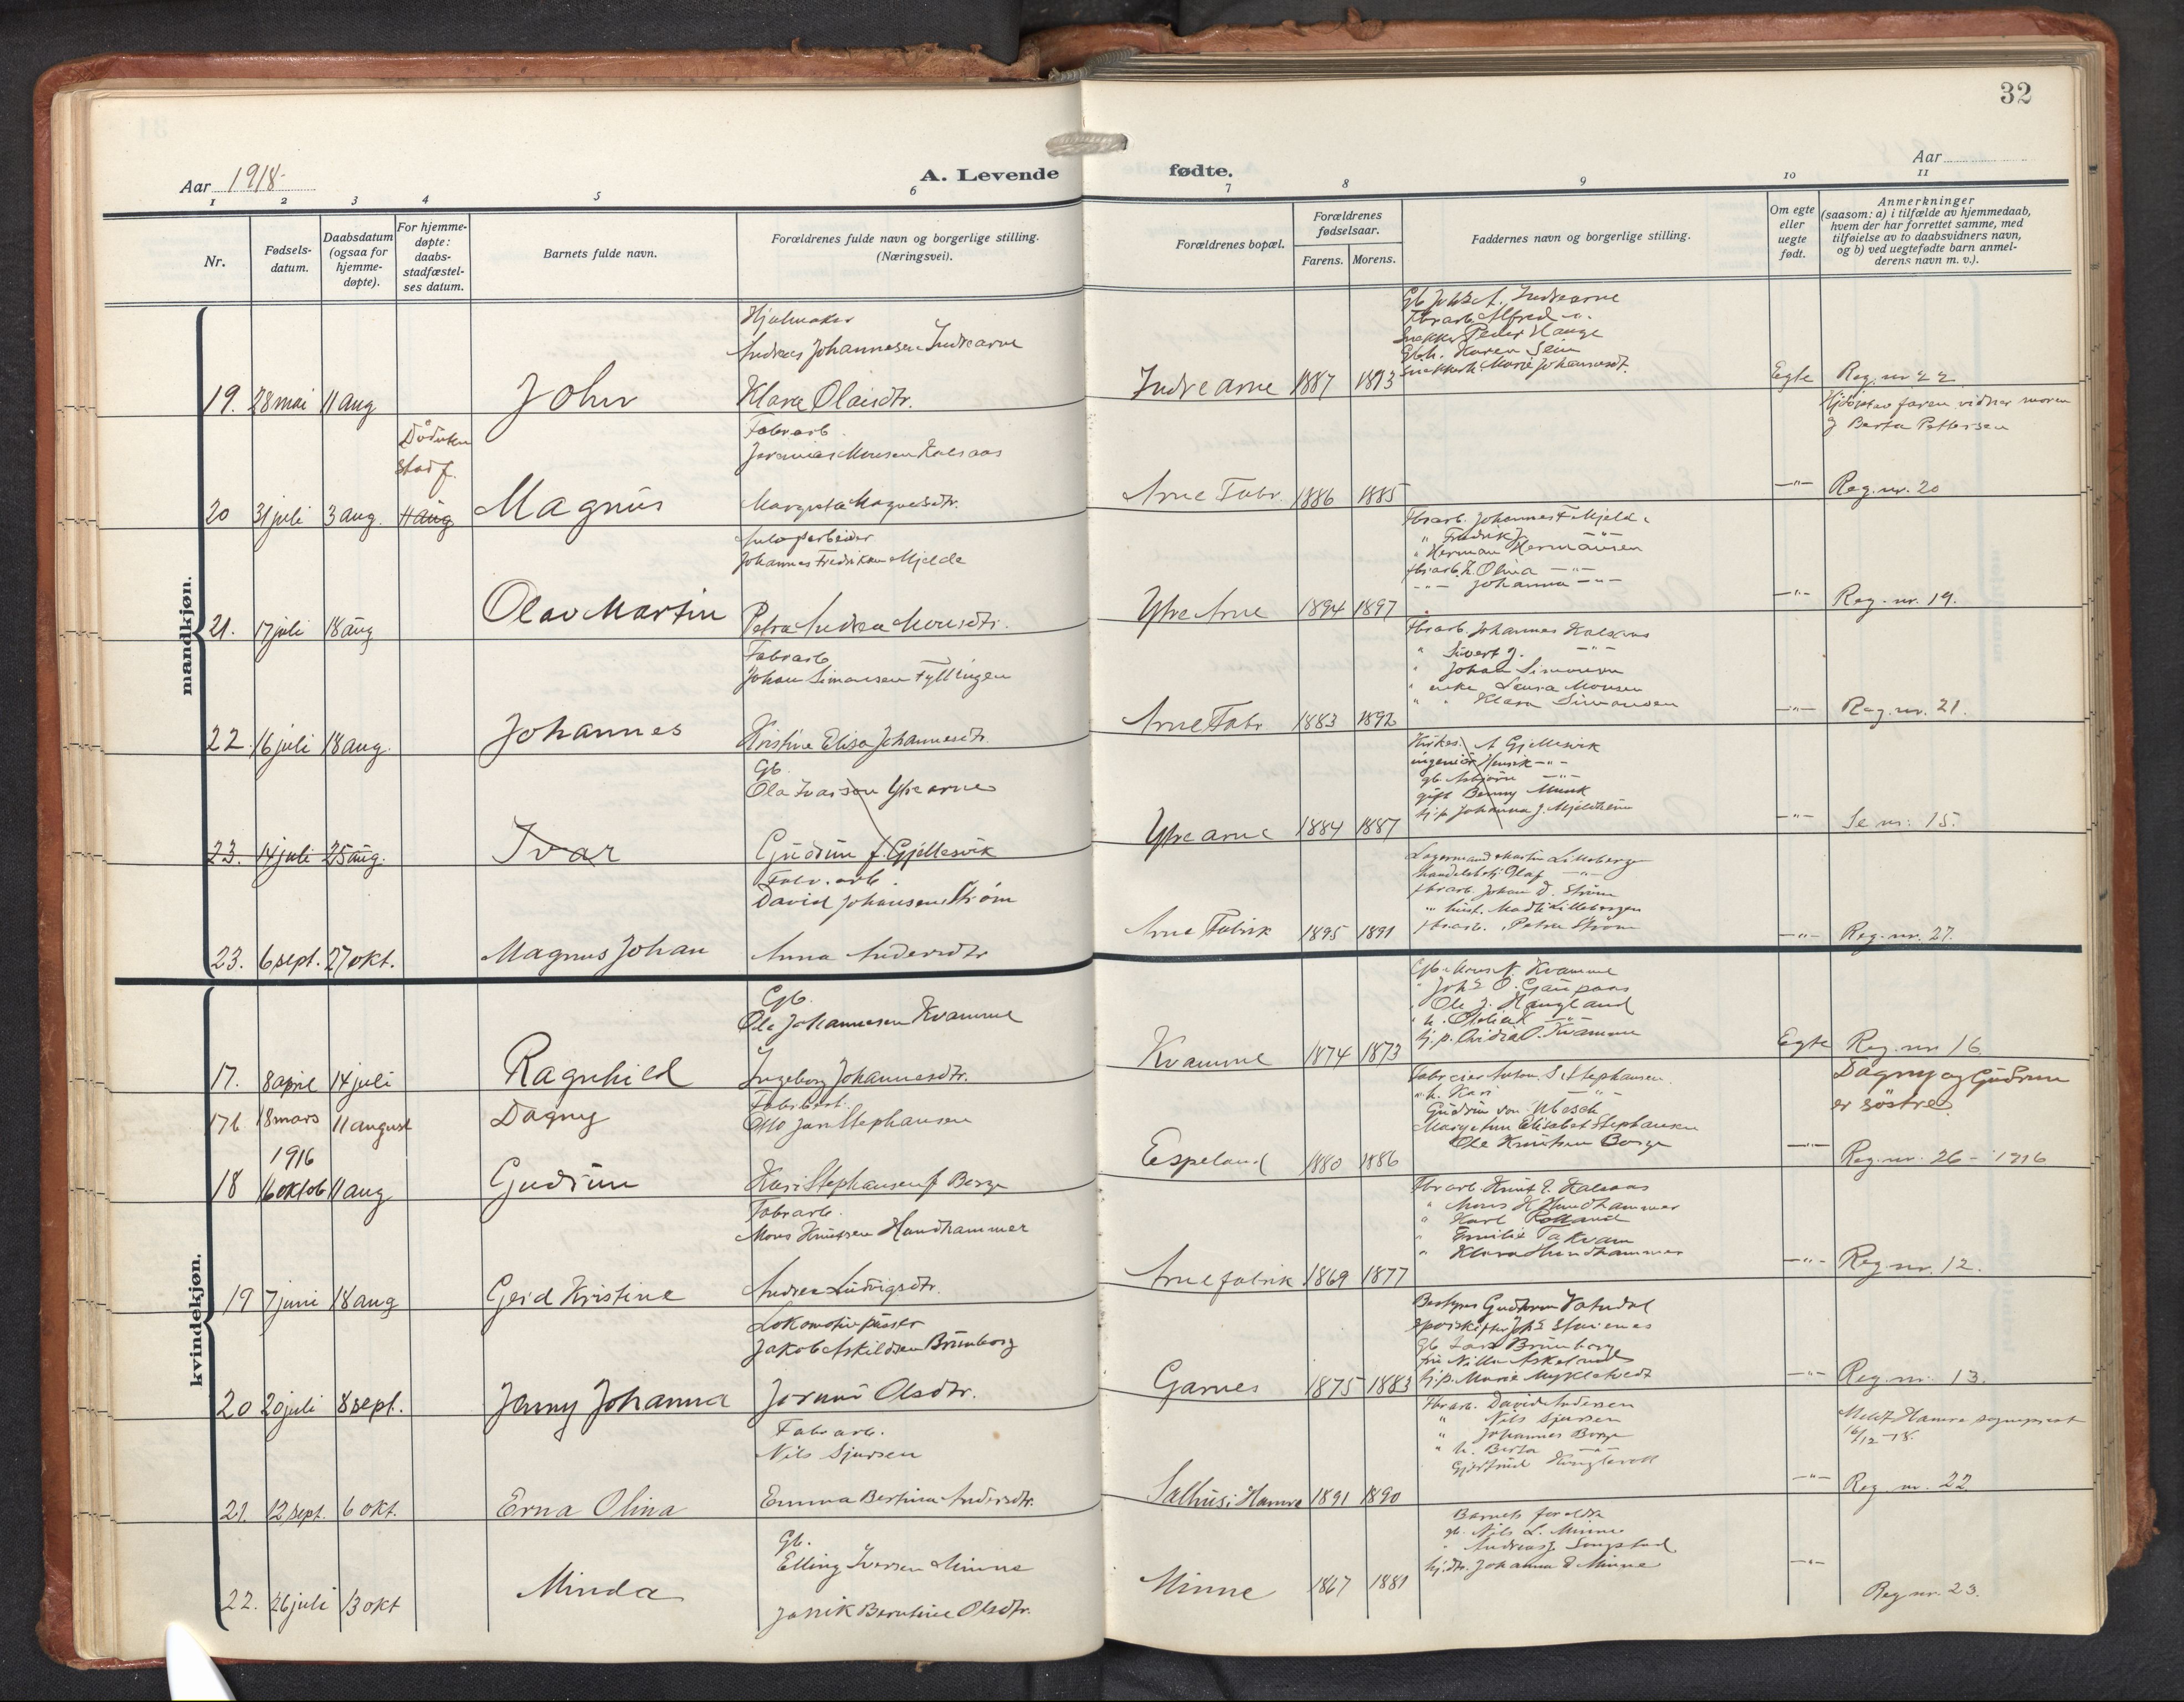 32
Aar 1918
A. Levende fødte.
Aar
1 2 3 4 5 6 7 8 9 10 11
Nr.
Fødsels-
datum.
Daabsdatum
(ogsaa for
hjemme-
døpte).
For hjemme-
døpte:
daabs-
stadfæstel-
ses datum.
Barnets fulde navn.
Forældrenes fulde navn og borgerlige stilling.
(Næringsvei).
Forældrenes bopæl.
Forældrenes
fødselsaar.
Farens. Morens.
Faddernes navn og borgerlige stilling.
Om egte
eller
uegte
født.
Anmerkninger
(saasom: a) i tilfælde av hjemmedaab,
hvem der har forrettet samme, med
tilføielse av to daabsvidners navn,
og b) ved uegtefødte barn anmel-
derens navn m. v.).
mandkjøn.
Hjulmaker
Andreas Johannesen Indrearne
19. 28 mai 11 aug John Klara Olaisdtr. Indre arne 1887 1893
Indrearne
Alfred -"-
Peder Hauge
Karen
Marie Johannesdt.
Egte Reg. nr 22
Død uten
stadf.
Fabrarb.
Monsen Kalsaas
20 31 juli 3 aug. 11 aug Magnus Margreta Magnesdtr. Arne Fabr. 1886 1885
Hjdøpt av faren vidner moren
og Berta Pettersen
-"- Reg. nr. 20
Johannes Fredriksen Mjelde
21. 17 juli 18 aug Olav Martin Petra Andrea Monsdtr. Ytre Arne 1894 1897
Fbrarb. Johannes F Mjeld
" Fredrik J. -"-
" Herman Hermansen
Olina -"-
-"- Johanna -"-
-"- Reg. nr. 19.
Fabrarb
Johan Simonsen Fyllingen
22. 16 juli 18 aug. Johannes Kristine Elisa Johannesdtr. Arne Fabr 1883 1892
Fbrarb. Johannes Kalsaas
" Sivert J. -"-
" Johan Simonsen
" enke Laura Monsen
" " Klara Simonsen
-"- Reg. nr. 21.
Gb.
Ola Ivarson Ytre arne
23. 14 juli 25 aug. Ivar Gudrun f. Gjellesvik Ytre arne 1884 1887
Kirkes. A Gjellesvik
ingeniør Henrik -"-
gb. Asbjørn -"-
gift Benny Munk
hj.p. Johanna J. Mjeldheim
-"- Se nr. 15.
Fabr. arb.
David Johansen Strøm
23. 6 sept. 27 okt. Magnus Johan Anna Andersdtr Arne Fabrik 1895 1891
Lagermand Martin Lilleberger
Olaf -"-
fbrarb. Johan D. Strøm
fbrarb. Petra Strøm
-"- Reg. nr. 27.
kvindekjøn.
Gb.
Ole Johannesen Kvamme
17. 8 april 14 juli Ragnhild Ingeborg Johannesdtr. Kvamme 1874 1873
Gb. Mons N. Kvamme
" Johs O. Gaupaas
" Ole J. Haugland
Kvamme
Egte Reg. nr 16
17b 18 mars 11 august Dagny
Otto Jan Stephansen
1916
18 16 oktob 11 aug Gudrun Kari Stephansen f Borge Espeland 1880 1886
Anton S Stephansen.
" h. Kari -"-
Gudrun von Ubesch
Elisabet Stephansen
Ole Knutsen Borge
Dagny og Gudrun
er søstre
-"- Reg. nr. 26 - 1916
Fabrarb.
Mons Knutsen Hundhammer
19 7 juni 18 aug Gerd Kristine Andrea Ludvigsdtr. Arne fabrik 1869 1877
Fbrarb. Knut E. Kalsaas
" Mons K Hundhammer
" Karl Rolland
" Emilie Takvam
" Klara Hundhammer
-"- Reg. nr. 12.
Lokomotivpusser
Jakob Askildsen Brunborg
20 20 juli 8 sept. Jenny Johanna Jorunn Olsdtr. Garnes 1875 1883
Bestyrer Gudbrun Vatndal
gb Lars Brunborg
fru Nilla Askeland
hj.p. Marie Myklebust
-"- Reg. nr. 13.
Fabrarb.
Nils Sjursen
21. 12 sept. 6 okt. Erna Olina Emma Bertina Andersdtr. Salhus i Hamre 1891 1890
Fbrarb. David Andersen
" Nils Sjursen
" Johannes Borge
" h. Berta -"-
Gjertrud
Meldt Hamre sogneprest
16/12 - 18.
-"- Reg. nr. 22
Gb.
Elling Iversen Minne
22. 26 juli 13 okt Minda Jannik Berntine Olsdtr. Minne 1867 1881
Barnets foreldre
gb. Nils L. Minne
" Andreas J Songstad
hj.dtr. Johanna E Minne
-"- Reg nr. 23.